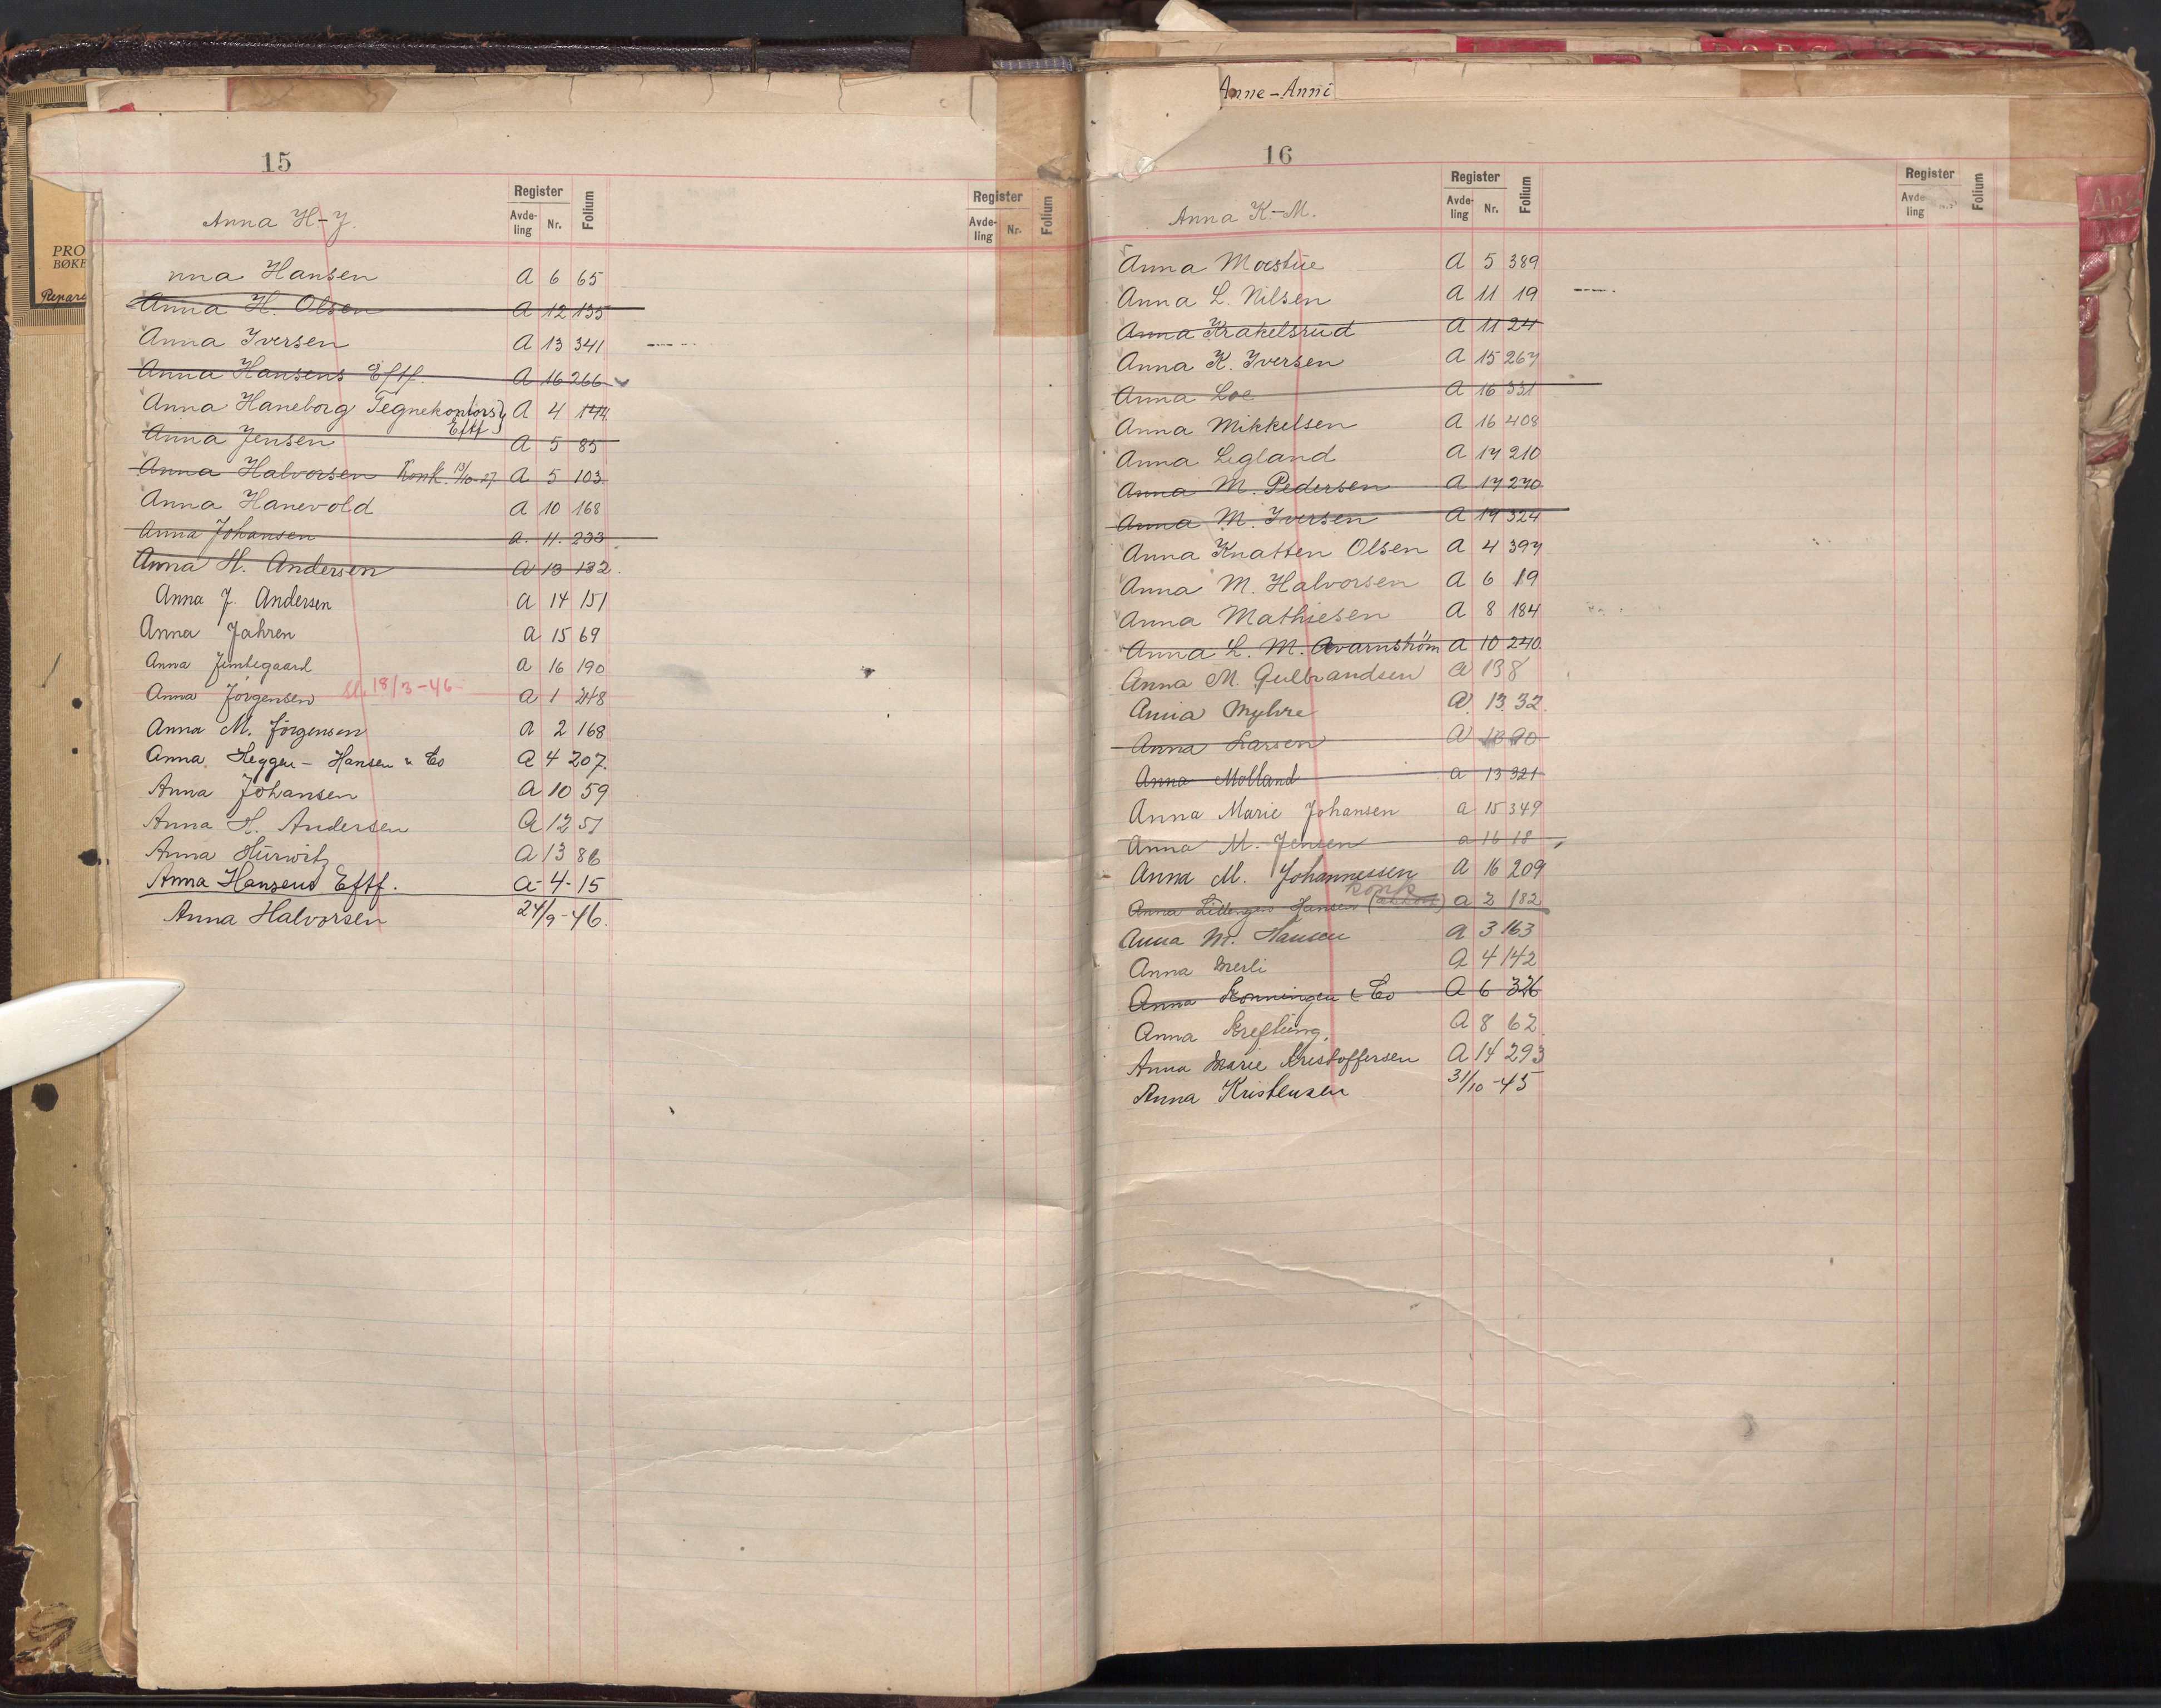 PRO
BØKE
Repare
15
Register
Avde-
ling
Nr.
Folium
Register
Avde-
ling
Nr.
Folium
Anna H-J.
nna Hansen A 6 65
Anna H. Olsen A 12 135
Anna Iversen A 13 341
Anna Hansens Eftf. A 16 266
Anna Haneborg Tegnekontors A 4 144
Eftf
Anna Jensen A 5 85
Anna Halvorsen Konk. A 5 103
Anna Hanevold A 10 168
Anna Johansen a. 11. 233
Anna H. Andersen A 13 132.
Anna J. Andersen A 14 151
Anna Jahren A 15 69
Anna A 16 190
Anna Jörgensen Sl. 18/3-46 A 1 248
Anna M. Jörgensen A 2 168
Anna Heggen - Hansen & Co A 4 207.
Anna Johansen A 10 59
Anna H. Andersen A 12 51
Anna Hurwitz A 13 86
Anna Hansens Eftf. A-4-15
Anna Halvorsen 24/9-46.
Anne-Anni
16
Register
Avde-
ling
Nr.
Folium
Register
Avde-
ling
Folium
An
Anna K-M.
Anna Moestue A 5 389
Anna L. Nilsen A 11 19
Anna Krakelsrud A 11 24
Anna K. Iversen A 15 267
Anna Loe A 16 331
Anna Mikkelsen A 16 408
Anna Legland A 17 210
Anna M. Pedersen A 17 270
Anna M. Iversen A 19 324
Anna Knatten Olsen A 4 397
Anna M. Halvorsen A 6 19
Anna Mathiesen A 8 184
Anna L. M. A 10 240.
Anna M. Gulbrandsen A 13 8
Anna Myhre A. 13. 32.
Anna Larsen A 90
Anna Molland a 13 321
Anna Marie Johansen a 15 349
Anna M. Jensen a 16 18
Anna M. Johannessen A 16 209
konk
Anna Hansen a 2 182
Anna M. Hansen A 3 163
Anna Merli A 4 142
Anna Konningen & Co A 6 326
Anna Krefting. A 8 62.
Anna Marie Kristoffersen A 14 293
Anna Kristensen 31/10-45